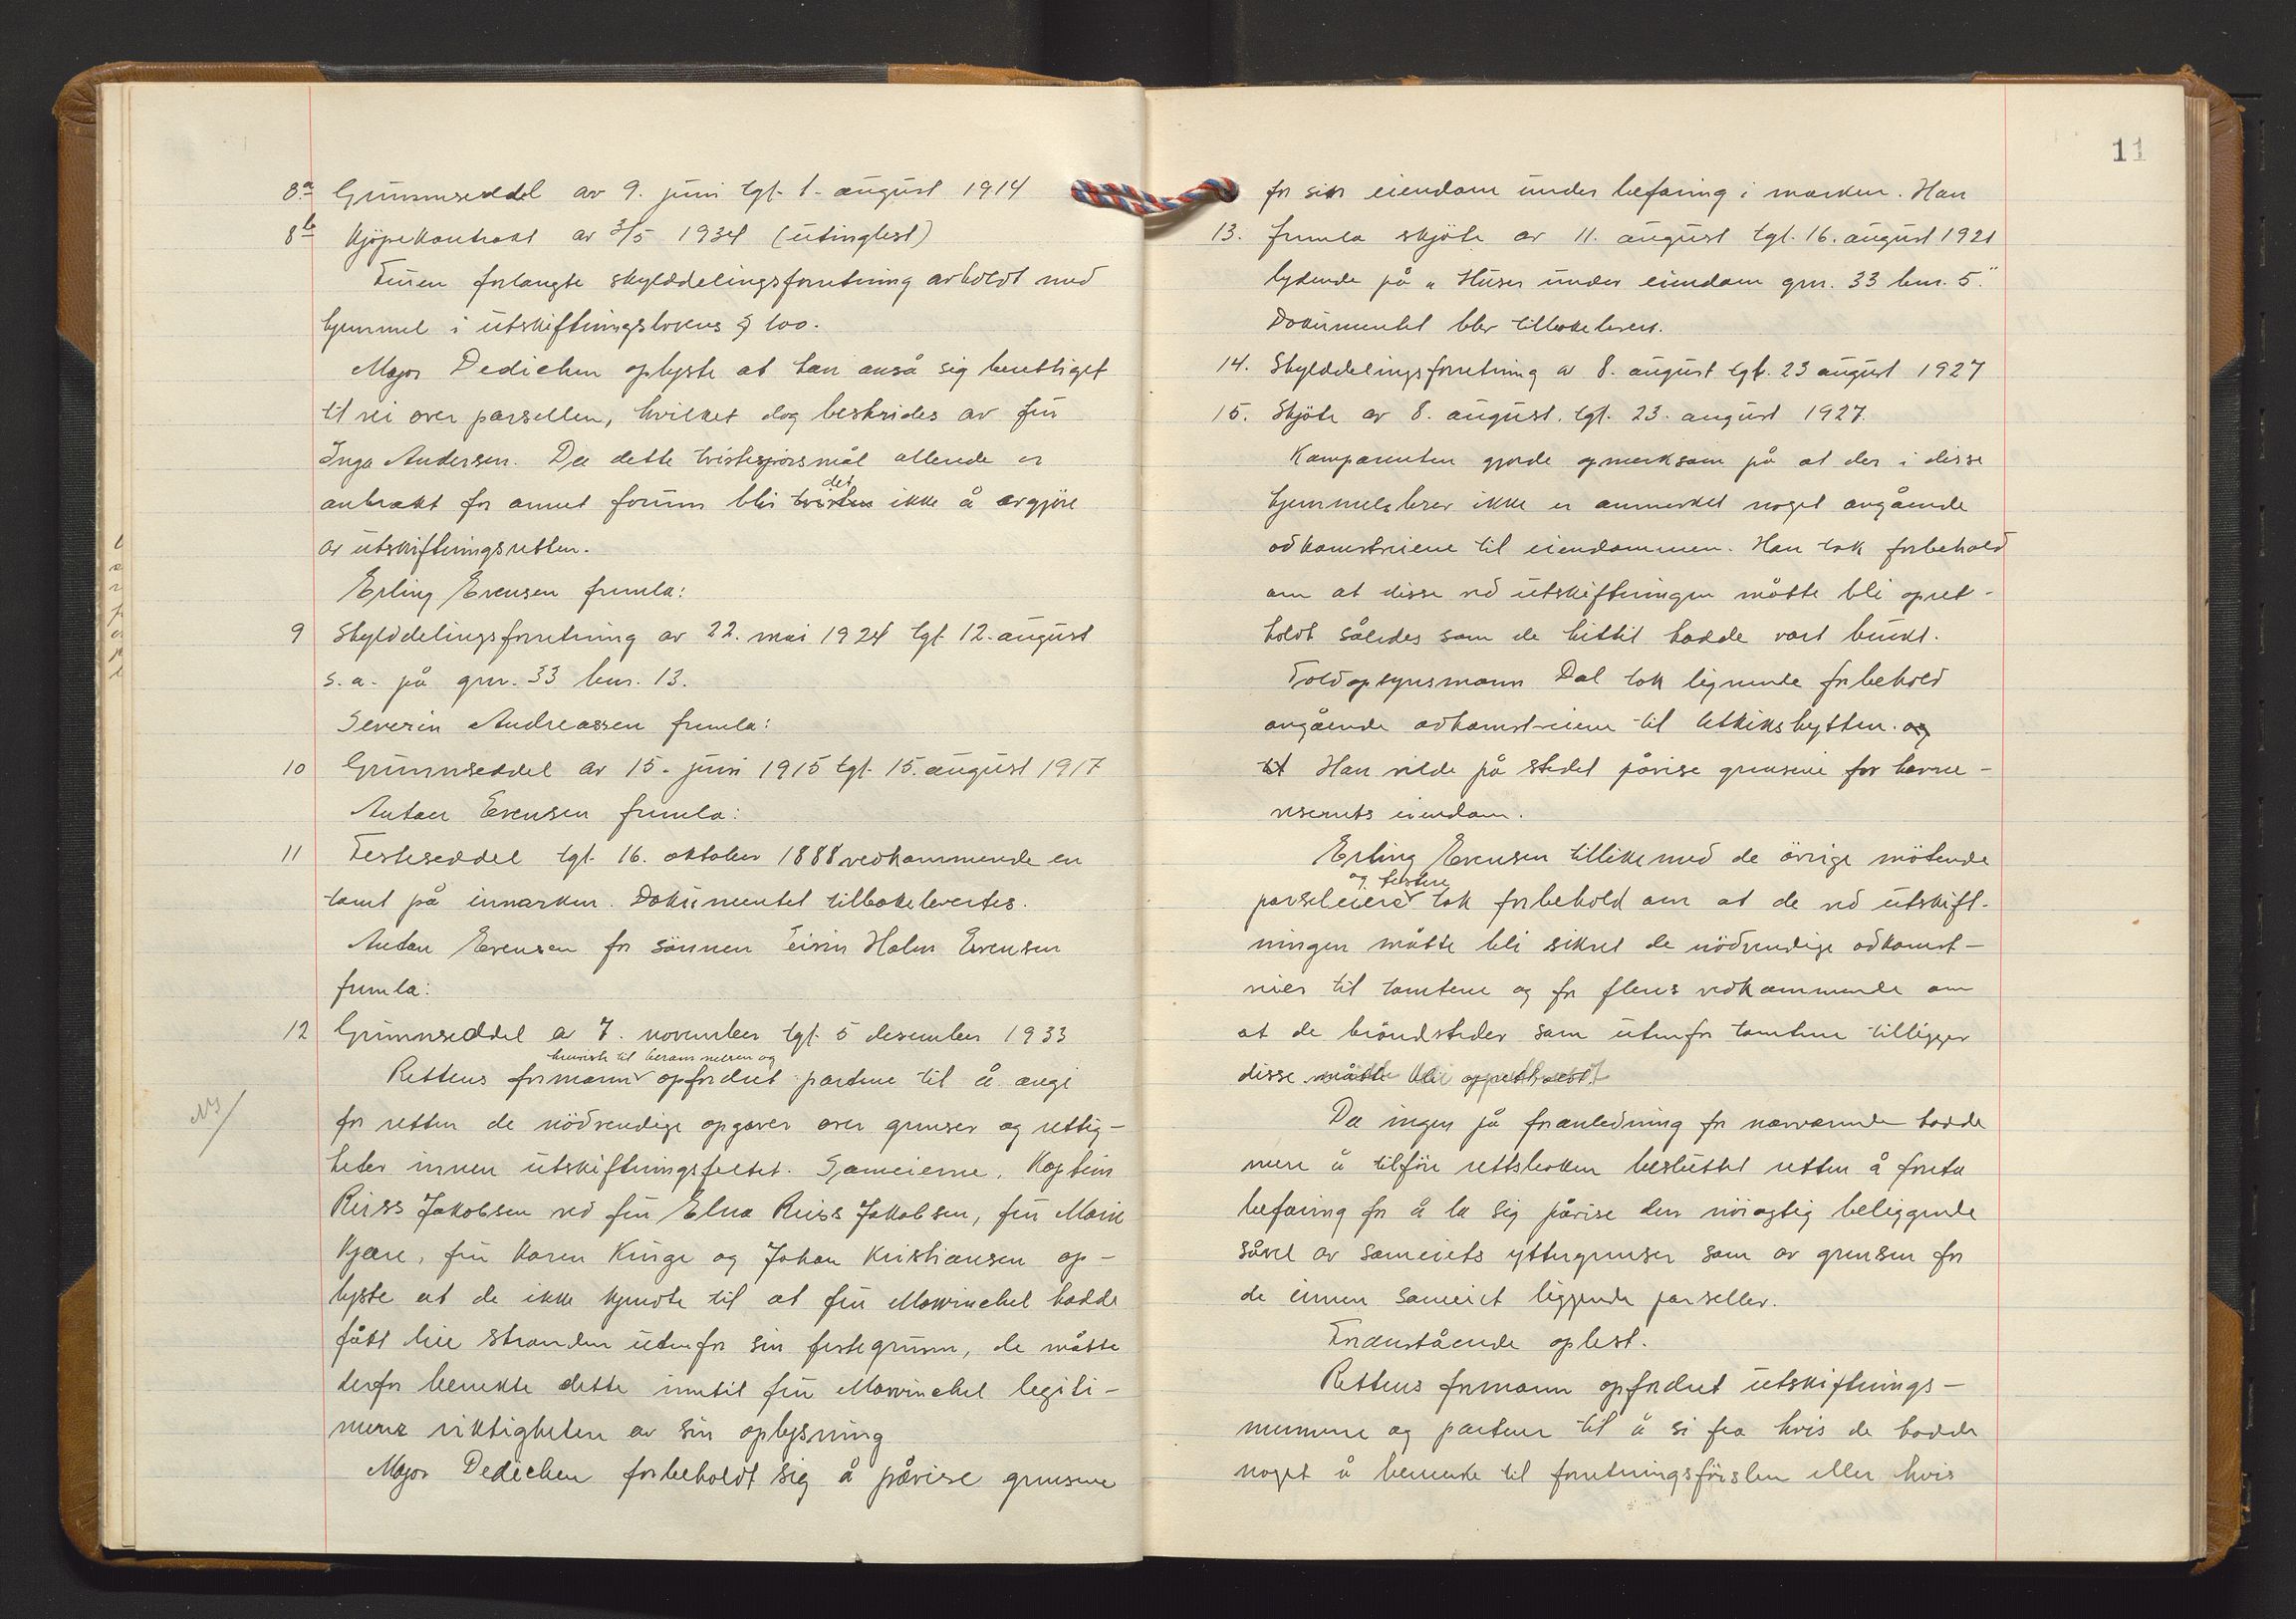 8a Grunnseddel av 9. juni tgl. 1. august 1914
8b Kjöpekontrakt av 3/5 1934 (utinglest)
Fruen forlangte skylddelingsforretning avholdt med
hjemmel i utskiftningslovens § 100.
Major Dedichen oplyste at han anså sig berettiget
til vei over parsellen, hvilket dog bestrides av fru
Inga Andersen. Da dette tvistespörsmål allerede er
anbrakt for annet forum blir tvisten det ikke å avgjöre
av utskiftningsretten.
Erling Evensen fremla:
9 Skylddelingsforretning av 22. mai 1924 tgl. 12. august
s.a. på gnr. 33 bnr. 13.
Severin Andreassen fremla:
10 Grunnseddel av 15. juni 1915 tgl. 15. august 1917
Anton Evensen fremla:
11 Festeseddel tgl. 16. oktober 1888 vedkommende en
tomt på innmarken. Dokumentet tilbakelevertes.
Anton Evensen for sönnen Eivin Holm Evensen
fremla:
12 Grunnseddel av 7. november tgl. 5 desember 1933
henviste til berammelsen og
Rettens formann opfordret partene til å angi
for retten de nödvendige opgaver over grenser og rettig-
heter innen utskiftningsfeltet. Sameierne, Kaptein
Riiss Jakobsen ved fru Elna Riiss Jakobsen, fru Marie
Kjære, fru Karen Kinge og Johan Kristiansen op-
lyste at de ikke kjendte til at fru Mowinckel hadde
fått leie stranden utenfor sin festegrunn, de måtte
derfor benekte dette inntil fru Mowinckel legiti-
merer riktigheten av sin oplysning
Major Dedichen forbeholdt sig å påvise grensene
11
for sin eiendom under befaring i marken. Han
13. fremla skjöte av 11. august tgl. 16. august 1921
lydende på "Huser under eiendom gnr. 33 bnr. 5."
Dokumentet blev tilbakelevert.
14. Skylddelingsforretning av 8. august tgl. 23 august 1927
15. Skjöte av 8. august. tgl. 23. august 1927.
Komparenten gjorde opmerksom på at der i disse
hjemmelsbrev ikke er anmerket noget angående
adkomstveiene til eiendommen. Han tok forbehold
om at disse ved utskiftningen måtte bli opret-
holdt således som de hittil hadde vært brukt.
Toldopsynsmann Dal tok lignende forbehold
angående adkomstveiene til utkikshytten. og
til Han vilde på stedet påvise grensene for havne-
vesenets eiendom.
Erling Evensen tillikemed de övrige mötende
og festere
parseleiere tok forbehold om at de ved utskift-
ningen måtte bli sikret de nödvendige adkomst-
veier til tomtene og for fleres vedkommende om
at de bröndsteder som utenfor tomtene tilligger
disse måtte bli opretholdt.
Da ingen på foranledning for nærværende hadde
mere å tilföre rettsboken besluttet retten å foreta
befaring for å la sig påvise den nöiagtig beliggende
såvel av sameiets yttergrenser som av grensen for
de innen sameiet liggende parseller.
Foranstående oplest.
Rettens formann opfordret utskiftnings-
mennene og partene til å si fra hvis de hadde
noget å bemerke til forretningsförslen eller hvis